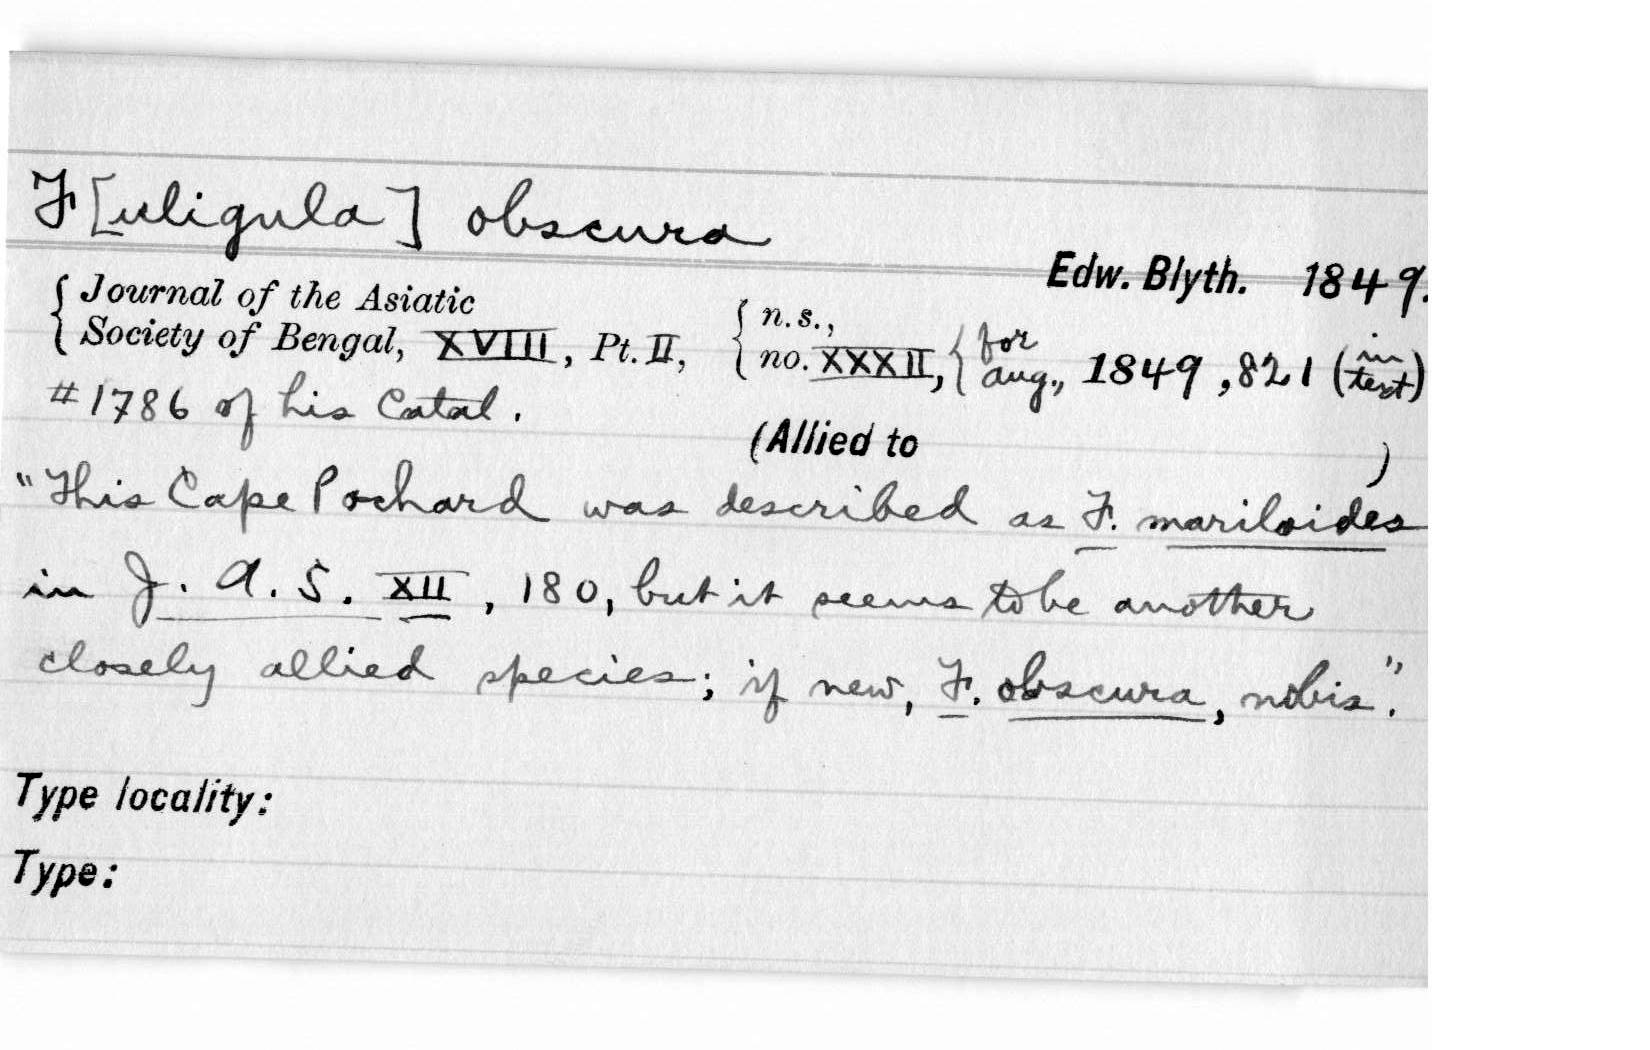 F[uligula] obscura
Edw. Blyth. 1849.
{ Journal of the Asiatic { n.s., { for
Society of Bengal, XVIII, Pt. II, no. XXXII, aug., 1849, 821 (in text)
#1786 of his Catal.
(Allied to )
"This Cape Pochard was described as F. mariloides
in J. A. S. XII, 180, but it seems to be another
closely allied species; if new, F. obscura, nobis."
Type locality:
Type: